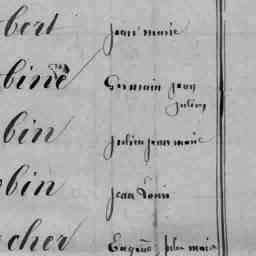 bert jean marie
bine Germain jean
julien
bin julien jean marie
bin jean Louis
cher Eugène